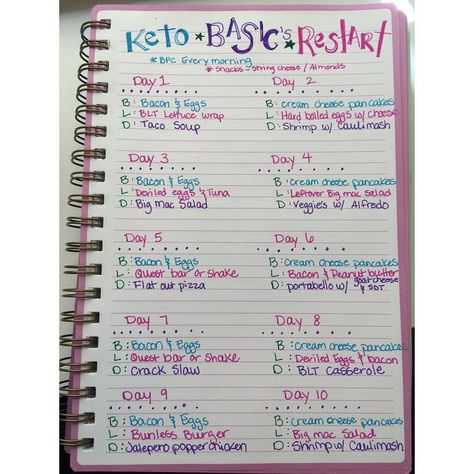 Keto ★ BASIC's ★ RestARt
* BPC Every morning
* Snacks - string cheese / Almonds
Day 1
B: Bacon & Eggs
L: BLT Lettuce wrap
D: Taco Soup
Day 2
B: cream cheese pancakes
L: Hard boiled eggs w/ cheese
D: Shrimp w/ Caulimash
Day 3
B: Bacon & Eggs
L: Deviled eggs & Tuna
D: Big mac Salad
Day 4
B: cream cheese pancakes
L: Leftover Big mac salad
D: Veggie's w/ Alfredo
Day 5
B: Bacon & Eggs
L: Quest bar or shake
D: Flat out pizza
Day 6
B: Cream cheese pancakes
L: Bacon & Peanut butter
D: portabello w/ goat cheese & SDT
Day 7
B: Bacon & Eggs
L: Quest bar or Shake
D: Crack Slaw
Day 8
B: Cream cheese pancakes
L: Deviled Eggs & bacon
D: BLT Casserole
Day 9
B: Bacon & Eggs
L: Bunless Burger
D: Jalepero popper chicken
Day 10
B: cream cheese pancakes
L: Big mac Salad
D: Shrimp w/ Caulimash